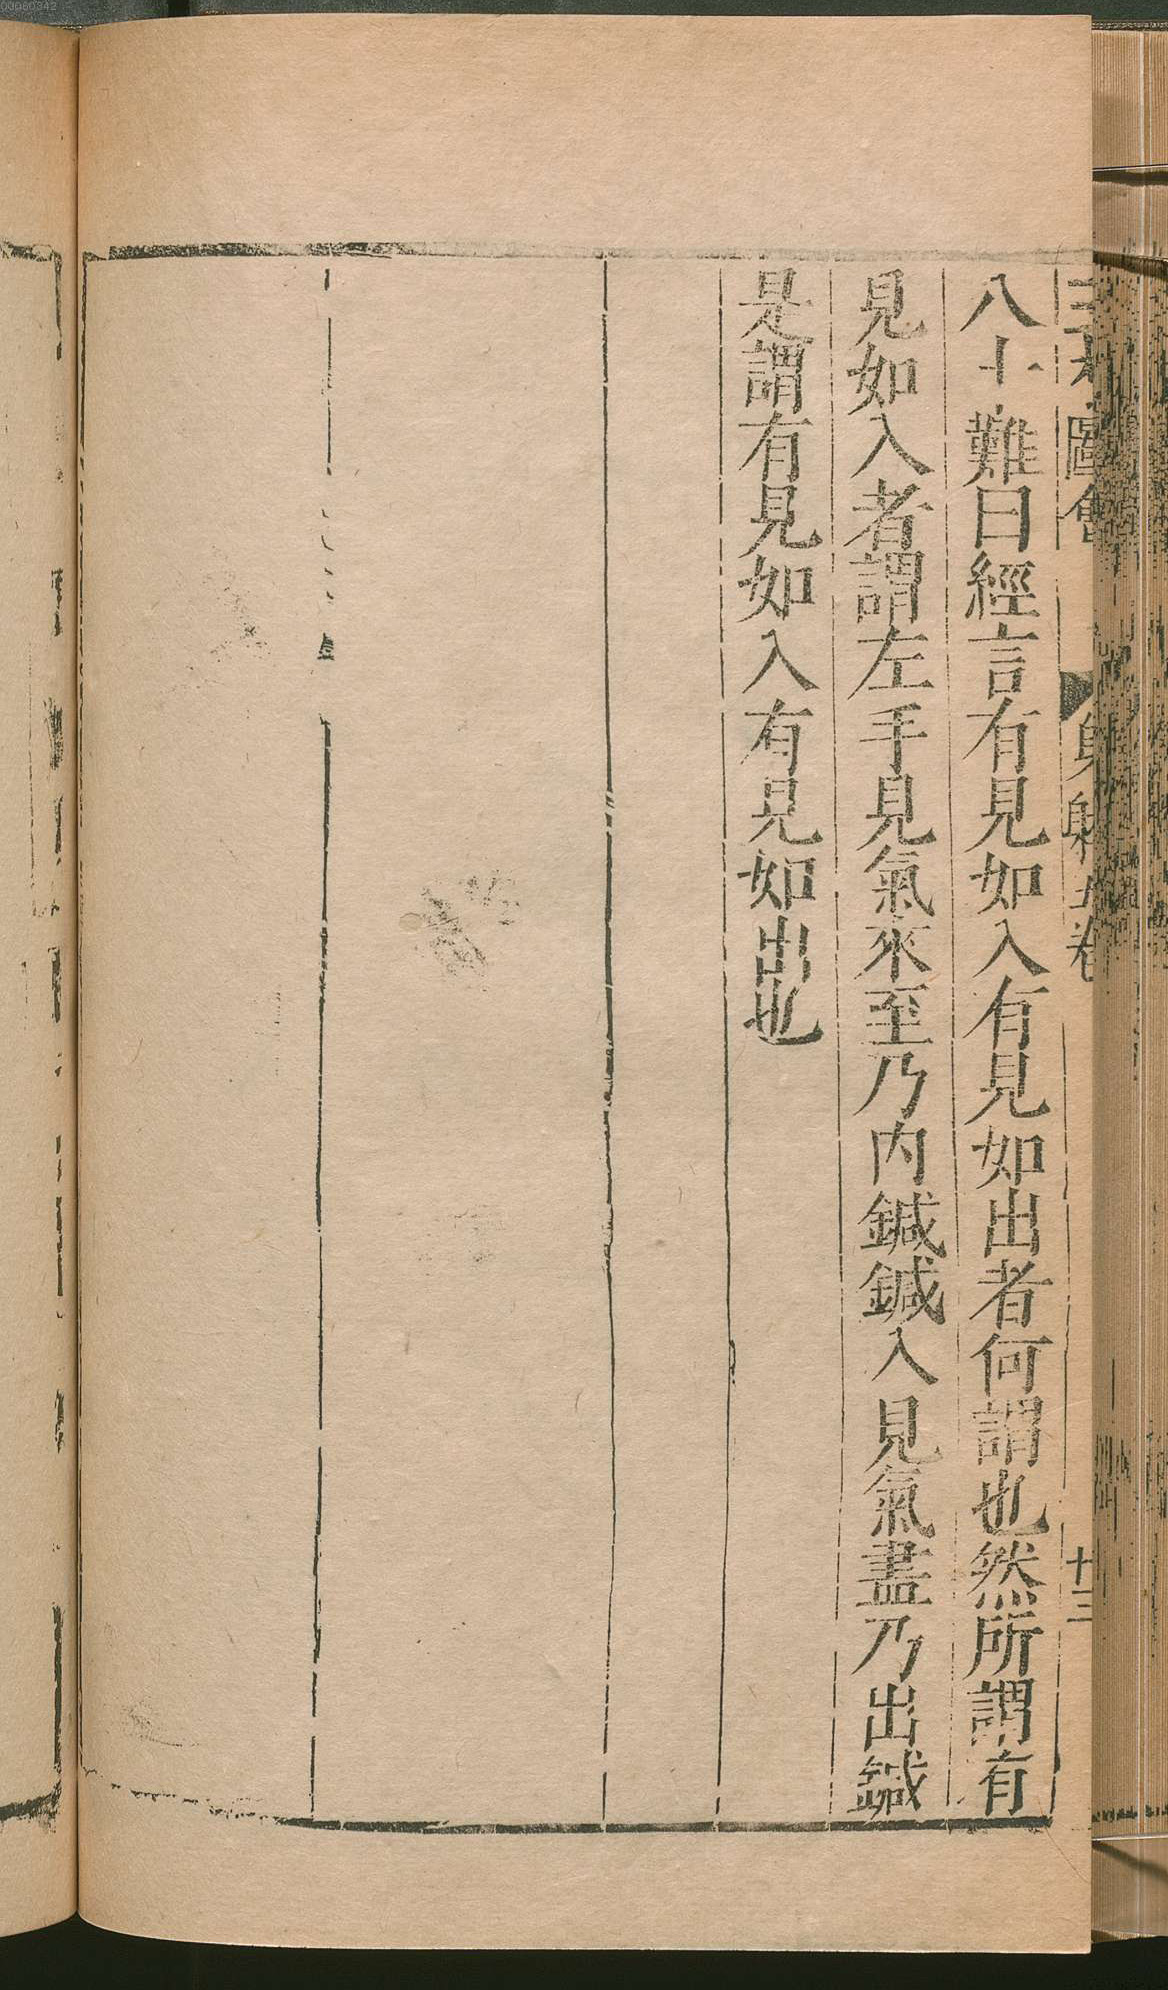 三才圖會 身體五卷 十三
八十難曰經言有見如入有見如出者何謂也然所謂有
見如入者謂左手見氣來至乃内鍼鍼入見氣盡乃出鍼
是謂有見如入有見如出也
00060342